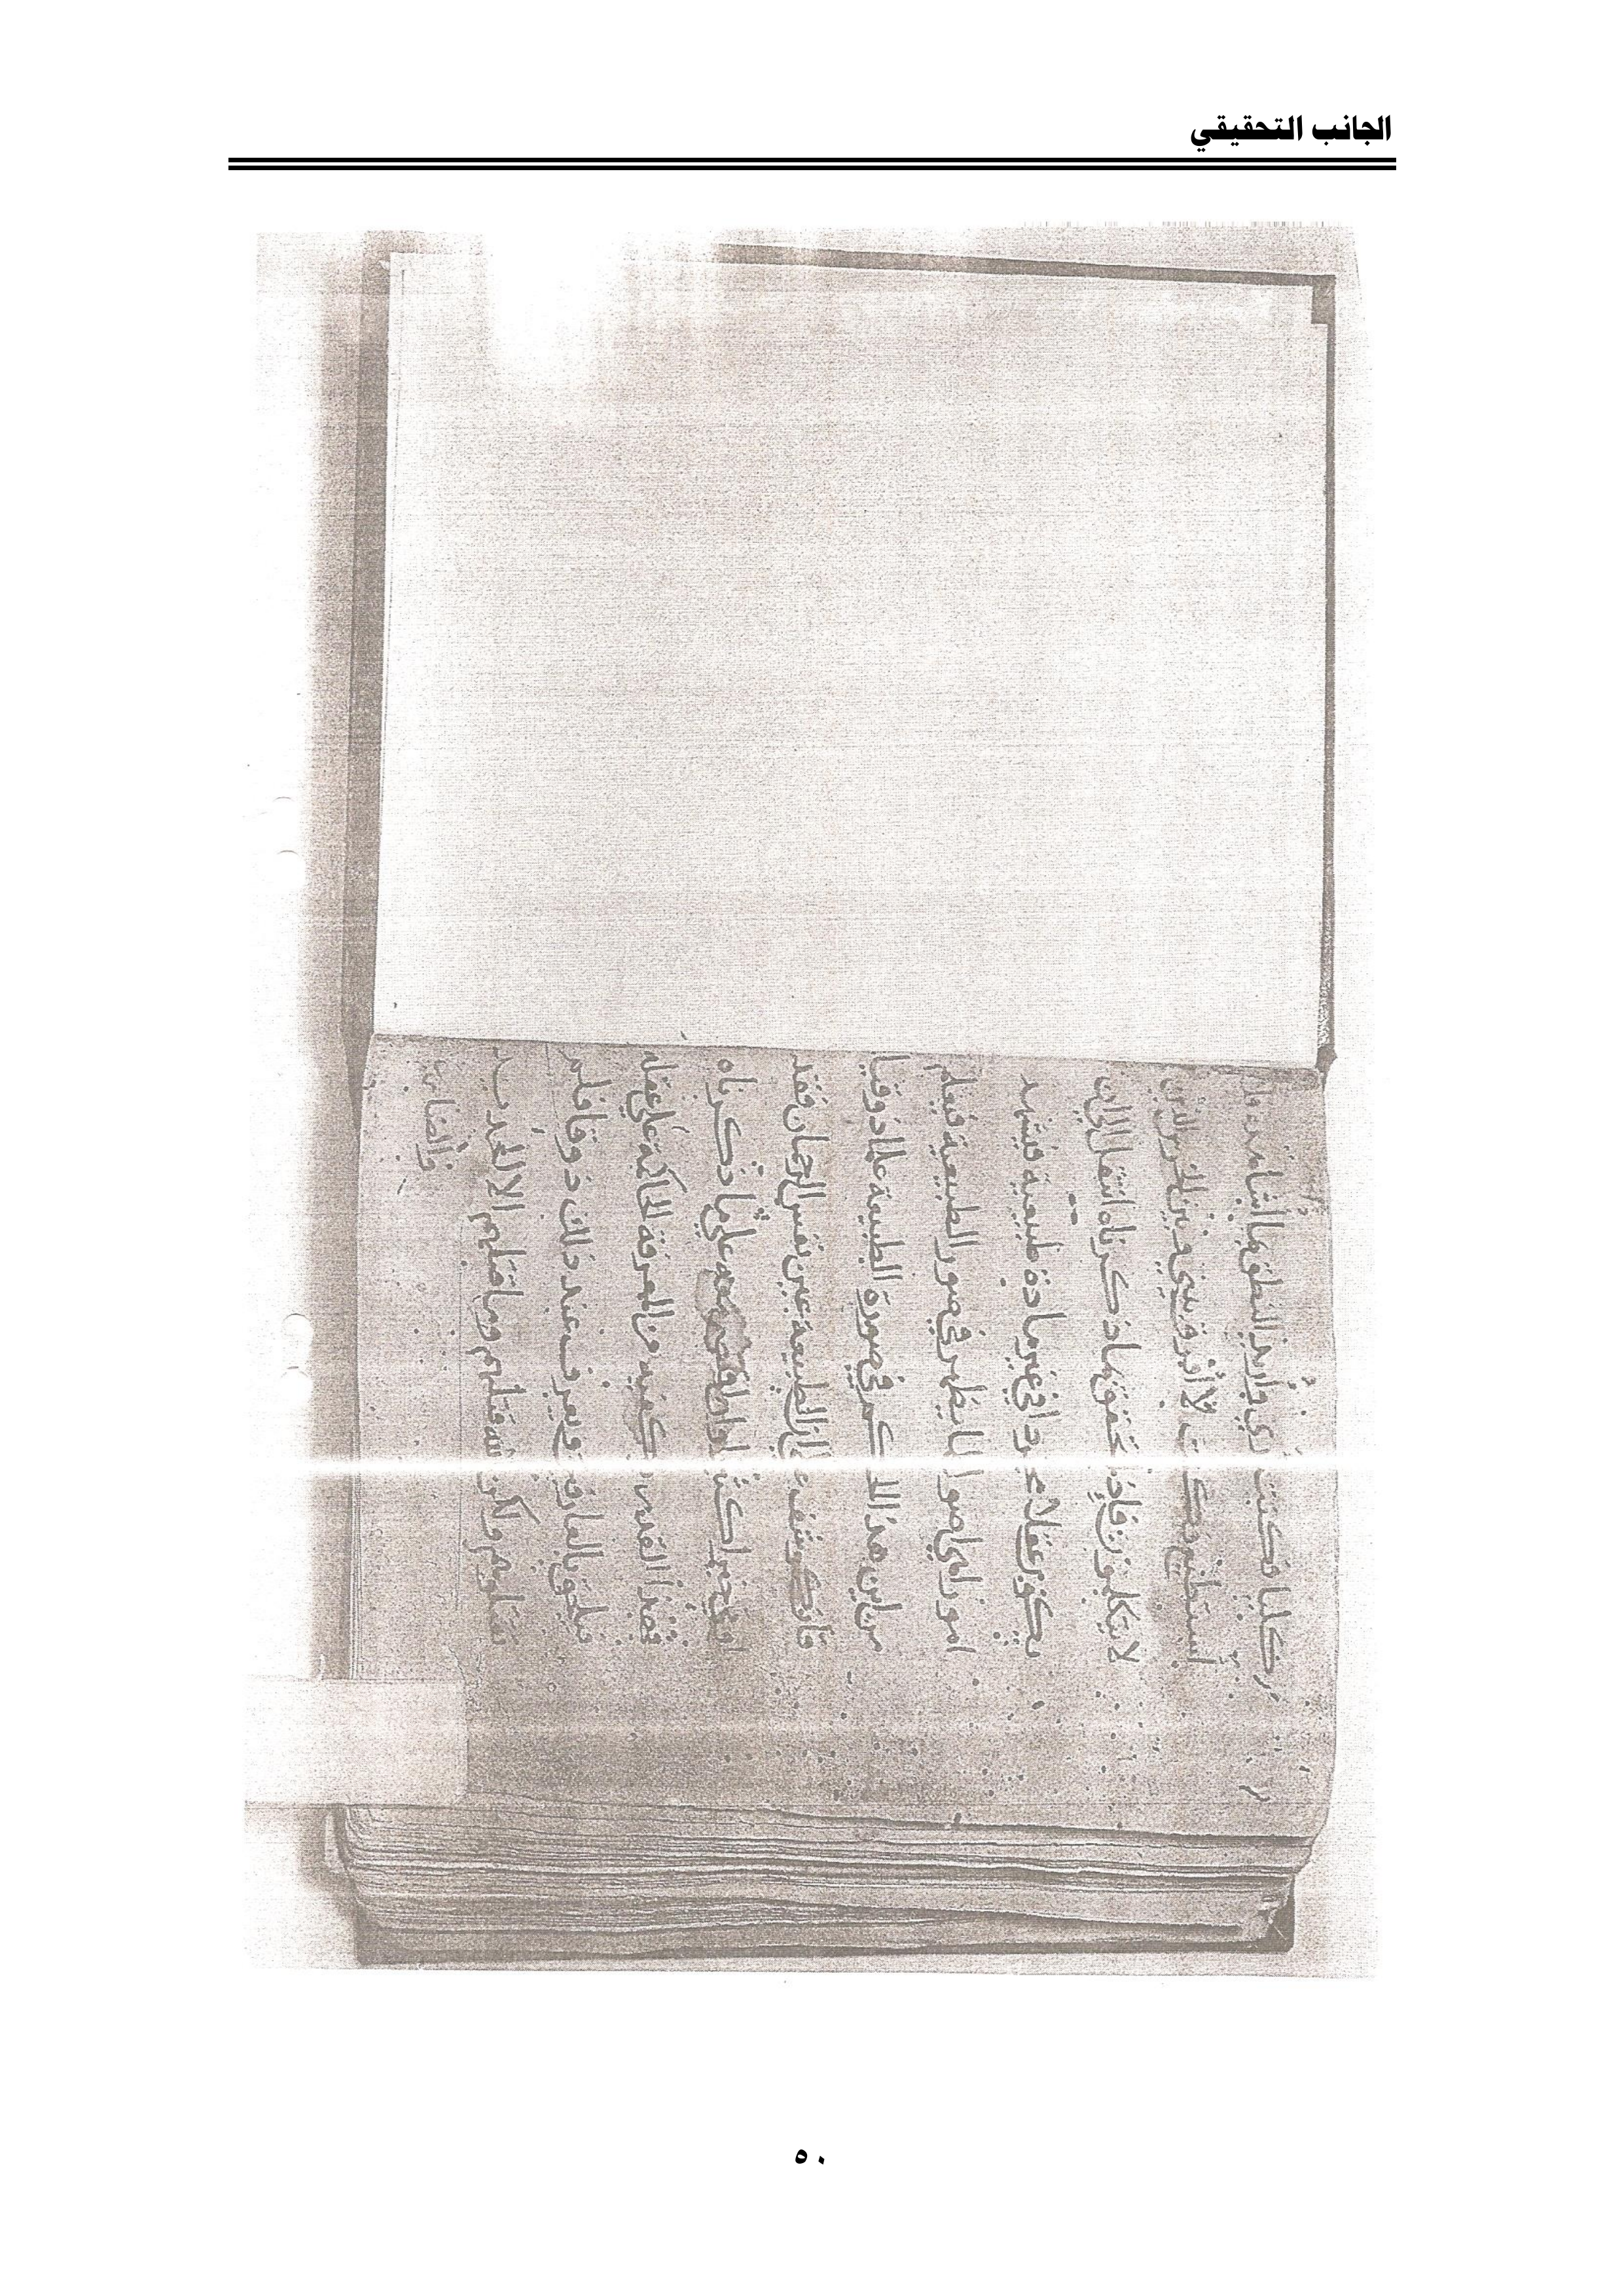 الجانب التحقيقي
كنت اري واريد النطق بما اشاهده فلا
استطيع فكنت لا افرق بيني وبين الخرس الذين
لا يتكلمون فاذا تحقق بما ذكرناه انتقل الي ان
يكون عقلا مجردا في غير مادة طبيعية فيشهد
امورا هي اصول لما يظهر في صور الطبيعية فيعلم
من اين هذا الحكم في صورة الطبيعة علما ذوقيا
فان كوشف علي ان الطبيعة عين نفس الرحمان فقد
اوتي خيرا كثيرا وان اقتصر معه علي ما ذكرناه
فهذا القدر يكفيه من المعرفة الحاكمة علي عقله
فيلحق بالعارفين ويعرف عند ذلك ذوقا فلم
تقتلوهم ولكن الله قتلهم وما قتلهم الا الحديد
والضارب
٥٠